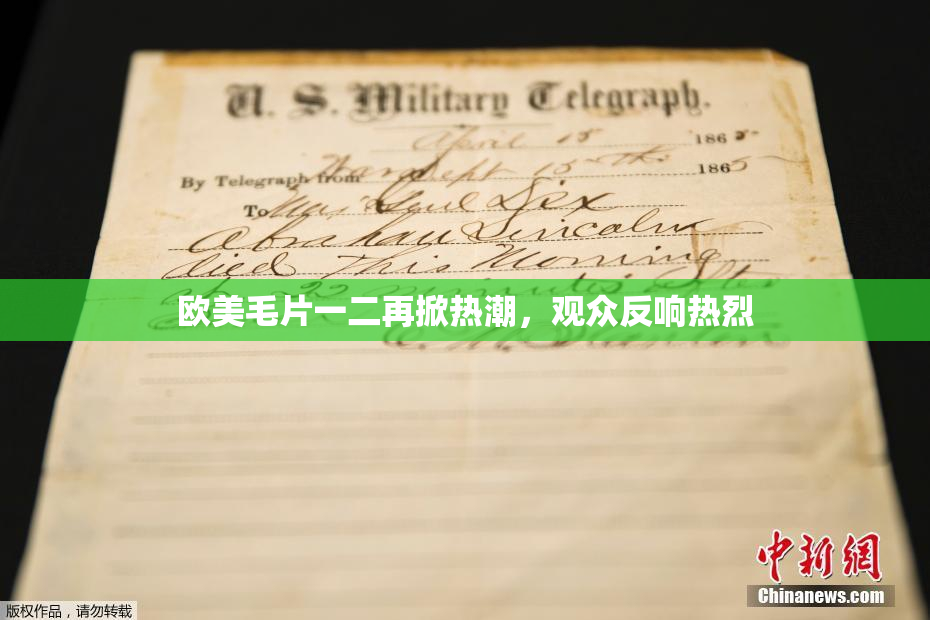 U. S. Military Telegraph.
April 15 1865.
By Telegraph from War Dept 15th 1865
To Maj Genl Dix
Abraham Lincoln
died This Morning
22 minutes after
欧美毛片一二再掀热潮，观众反响热烈
E. M. Stanton
中新网
Chinanews.com
版权作品，请勿转载